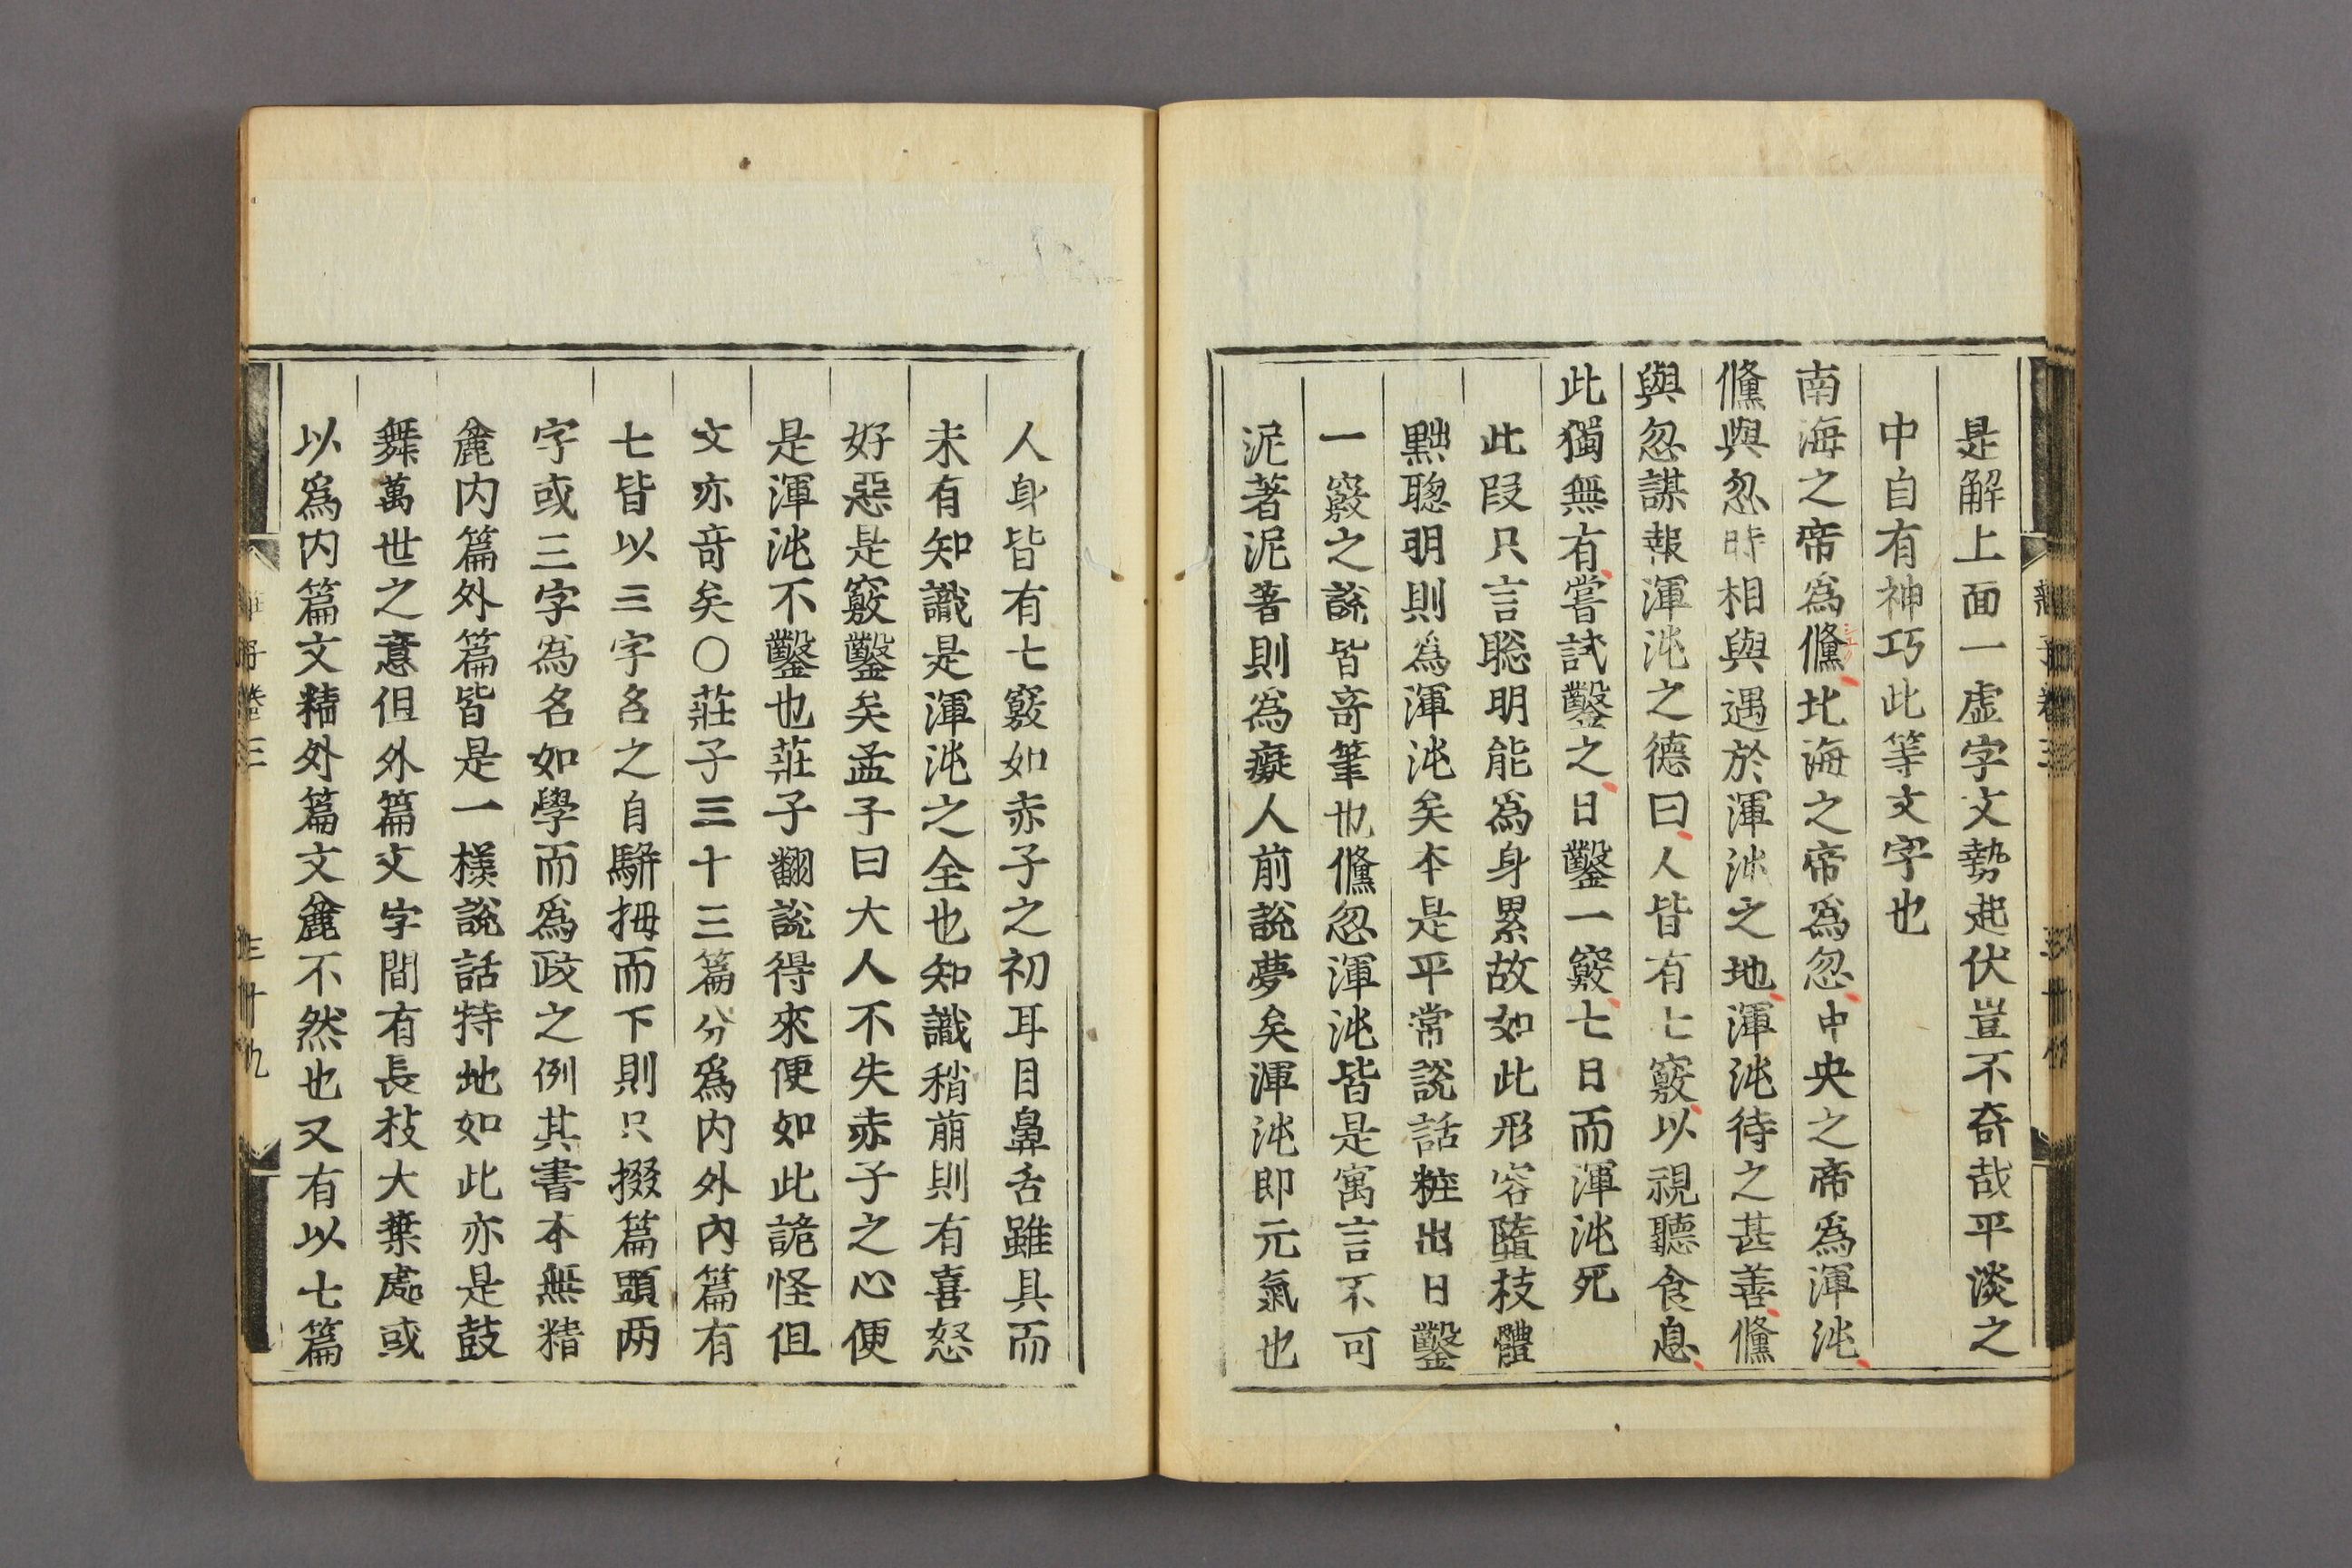 是解上面一虛字文勢起伏豈不奇哉平淡之
中自有神巧此等文字也
南海之帝爲儵北海之帝爲忽中央之帝爲渾沌
儵與忽時相與遇於渾沌之地渾沌待之甚善儵
與忽謀報渾沌之德曰人皆有七竅以視聽食息
此獨無有嘗試鑿之日鑿一竅七日而渾沌死
此段只言聡明能爲身累故如此形容墮枝體
黜聦明則爲渾沌矣本是平常說話粧出日鑿
一竅之說皆奇筆也儵忽渾沌皆是寓言不可
泥著泥著則爲癡人前說夢矣渾沌即元氣也
人身皆有七竅如赤子之初耳目鼻舌雖具而
未有知識是渾沌之全也知識稍萠則有喜怒
好惡是竅鑿矣孟子曰大人不失赤子之心便
是渾沌不鑿也莊子翻說得來便如此詭怪但
文亦竒矣○莊子三十三篇分爲内外內篇有
七皆以三字名之自駢拇而下則只掇篇頭两
字或三字爲名如學而爲政之例其書本無精
麄内篇外篇皆是一樣說話特地如此亦是鼓
舞萬世之意但外篇文字間有長枝大葉處或
以爲内篇文精外篇文麄不然也又有以七篇
莊子卷三
三十九